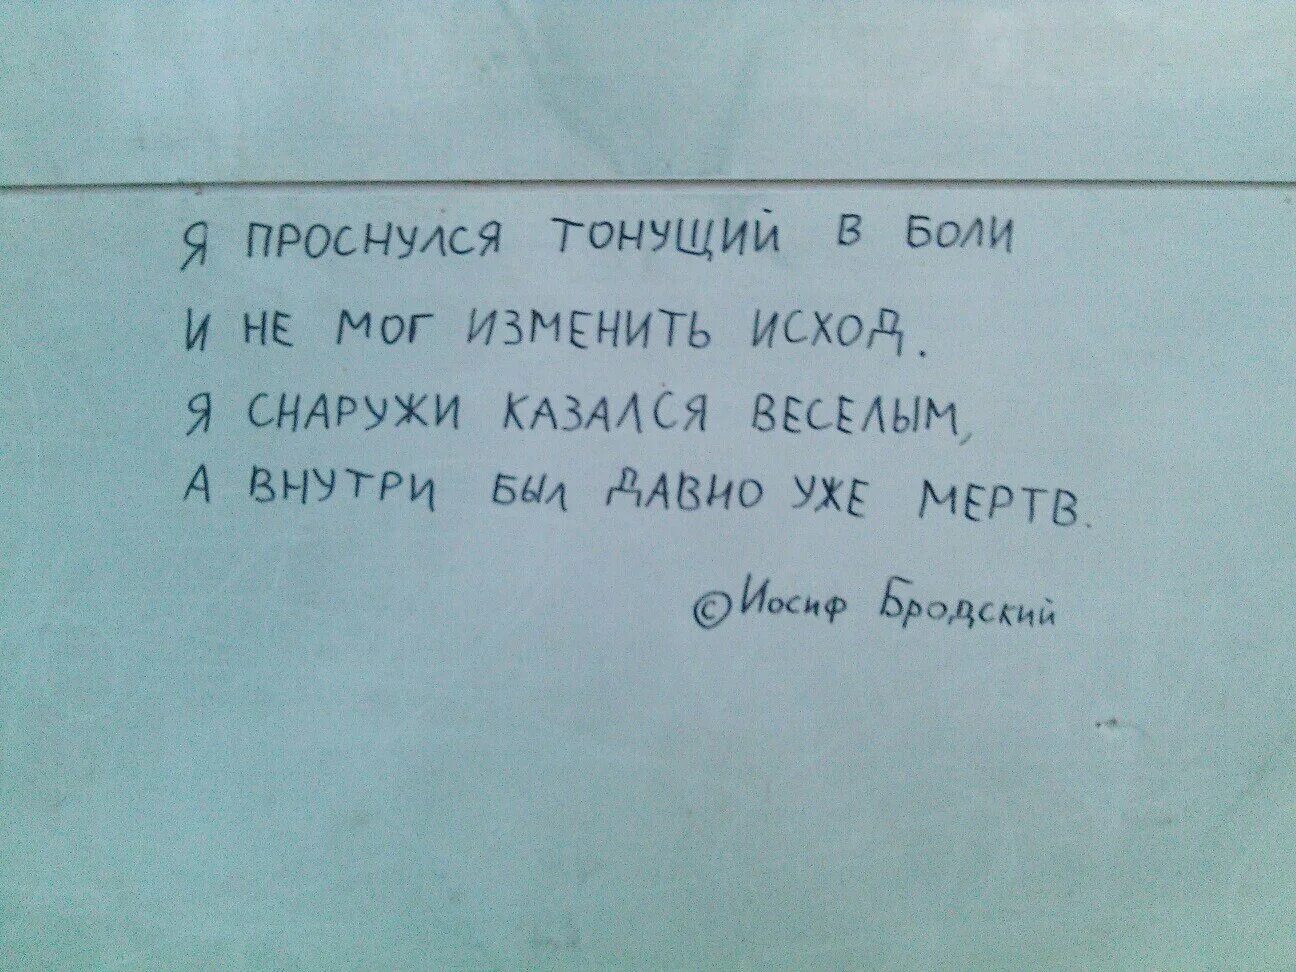 Я ПРОСНУЛСЯ ТОНУЩИЙ В БОЛИ
И НЕ МОГ ИЗМЕНИТЬ ИСХОД.
Я СНАРУЖИ КАЗАЛСЯ ВЕСЕЛЫМ,
А ВНУТРИ БЫЛ ДАВНО УЖЕ МЕРТВ.
© Иосиф Бродский